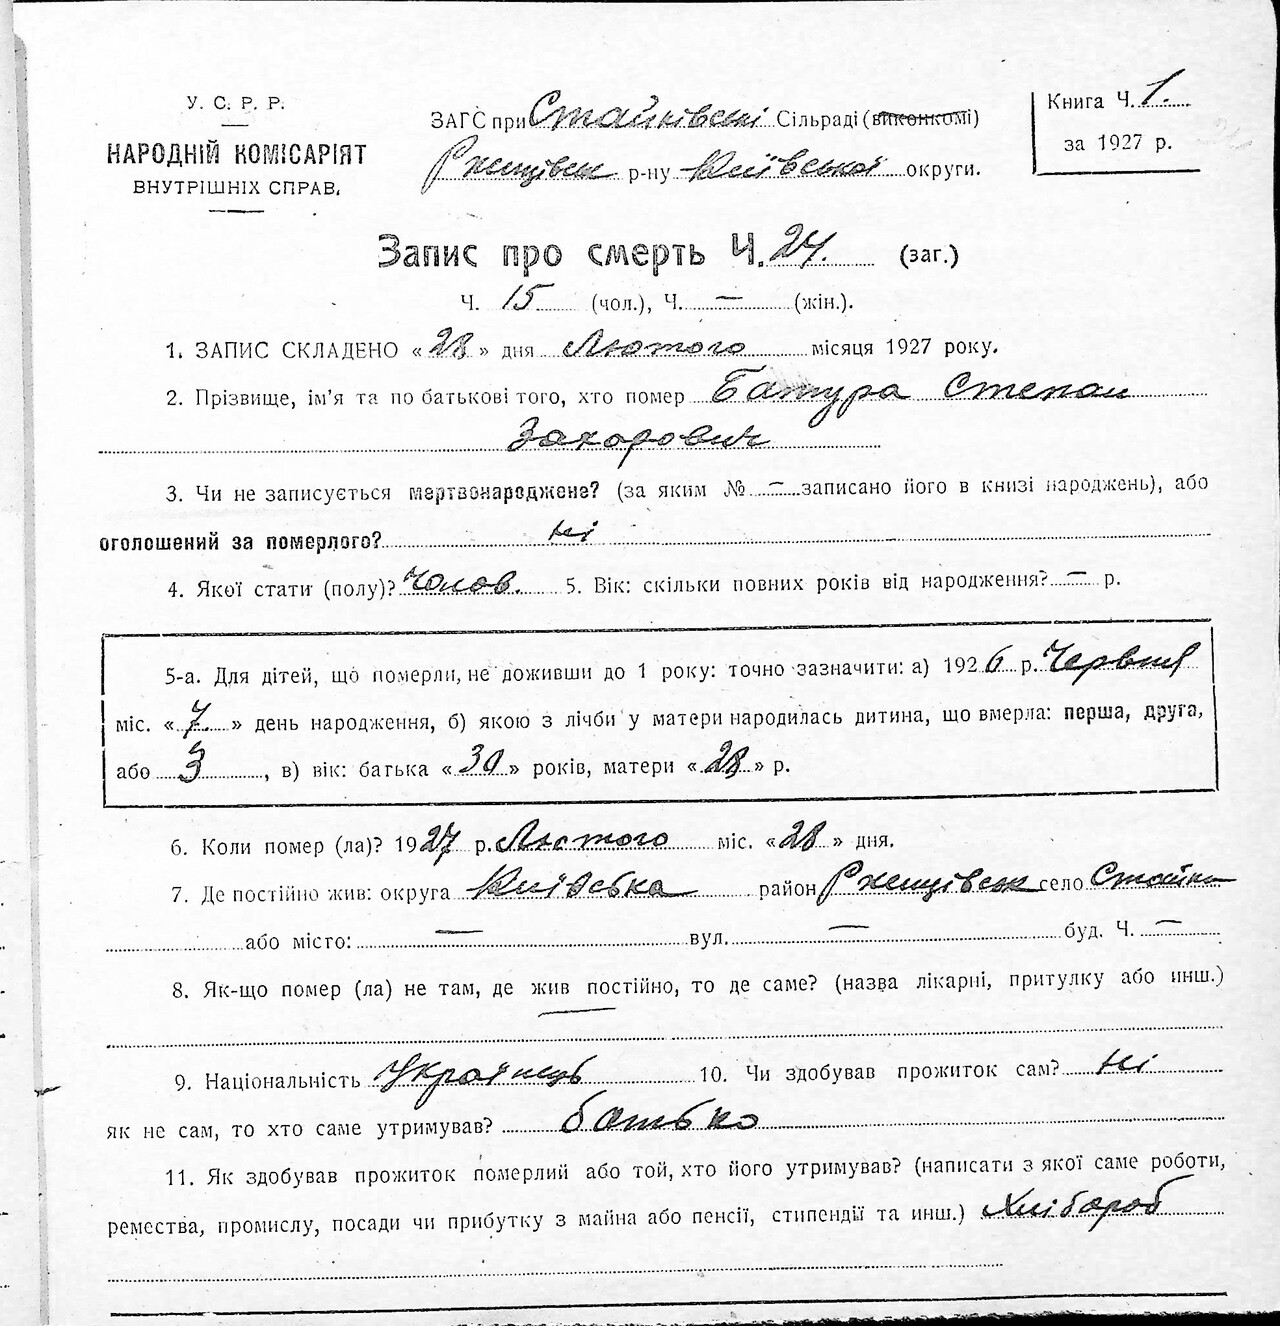 У. С. Р. Р.
НАРОДНІЙ КОМІСАРІЯТ
ВНУТРІШНІХ СПРАВ.
ЗАГС при Стайківскі Сільраді (виконкомі)
Ржищівськ р-ну Київської округи.
Книга Ч. 1.
за 1927 р.
Запис про смерть Ч. 24. (заг.)
Ч. 15 (чол.), Ч. — (жін.).
1. ЗАПИС СКЛАДЕНО « 28 » дня Лютого місяця 1927 року.
2. Прізвище, ім'я та по батькові того, хто помер Батура Степан
Захорович
3. Чи не записується мертвонароджене? (за яким № — записано його в книзі народжень), або
оголошений за померлого? ні
4. Якої стати (полу)? Чолов. 5. Вік: скільки повних років від народження? — р.
5-а. Для дітей, що померли, не доживши до 1 року: точно зазначити: а) 1926 р. Червня
міс. « 7. » день народження, б) якою з лічби у матери народилась дитина, що вмерла: перша, друга,
або 3, в) вік: батька « 30 » років, матери « 28 » р.
6. Коли помер (ла)? 1927 р. Лютого міс. « 28 » дня.
7. Де постійно жив: округа Київська район Ржищівськ село Стайки
або місто: — вул. — буд. Ч. —
8. Як-що помер (ла) не там, де жив постійно, то де саме? (назва лікарні, притулку або инш.)
—
9. Національність Українець 10. Чи здобував прожиток сам? ні
як не сам, то хто саме утримував? батько
11. Як здобував прожиток померлий або той, хто його утримував? (написати з якої саме роботи,
ремества, промислу, посади чи прибутку з майна або пенсії, стипендії та инш.) Хлібороб